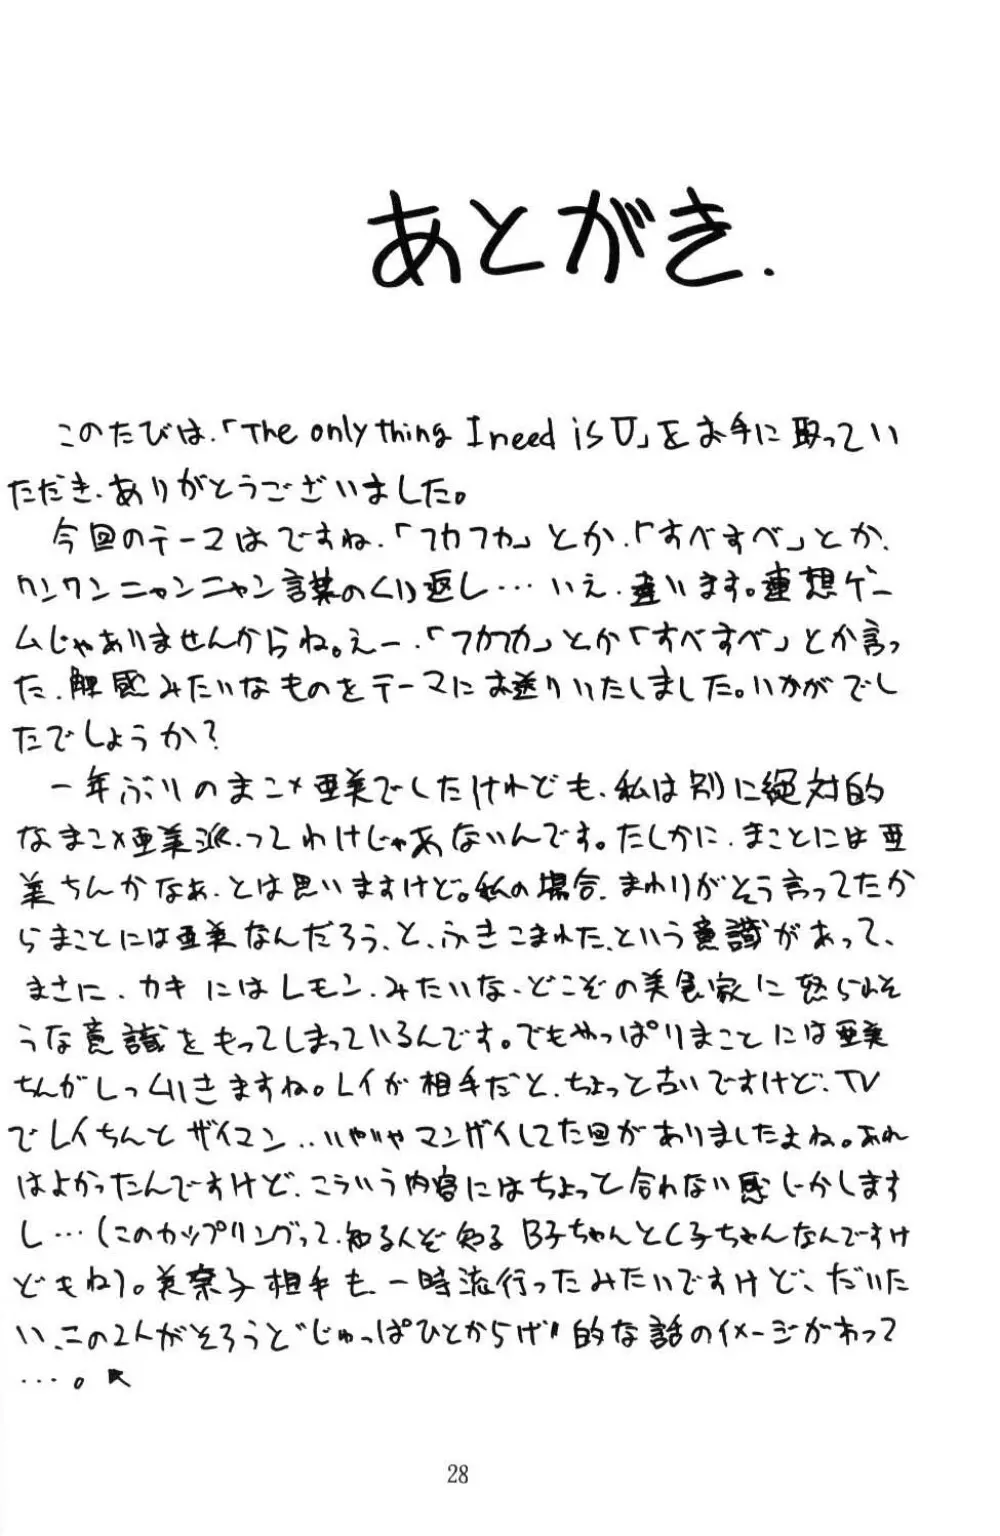 あとがき.
このたびは、「The only thing I need is U」をお手に取ってい
ただき、ありがとうございました。
今回のテーマはですね、「フカフカ」とか、「すべすべ」とか、
ワンワンニャンニャン言葉のくり返し…いえ、違います。連想ゲー
ムじゃありませんからね。えー、「フカフカ」とか「すべすべ」とか言っ
た、触感みたいなものをテーマにお送りいたしました。いかがでし
たでしょうか?
一年ぶりのまこ×亜美でしたけれども、私は別に絶対的
なまこ×亜美派、ってわけじゃあないんです。たしかに、まことには亜
美ちんかなぁ、とは思いますけど。私の場合、まわりがそう言ってたか
らまことには亜美なんだろう、と、ふきこまれた、という意識があって、
まさに、カキにはレモン、みたいな、どこぞの美食家に怒られそ
うな意識をもってしまっているんです。でもやっぱりまことには亜美
ちんがしっくりきますね。レイが相手だと、ちょっと古いですけど、TV
でレイちんとザイマン‥いやいやマンザイしてた回がありましたよね。あれ
はよかったんですけど、こういう内容にはちょっと合わない感じがします
し…(このカップリングって、知る人ぞ知るB子ちゃんとC子ちゃんなんですけ
どもね)。美奈子相手も、一時流行ったみたいですけど、だいた
い、この2人がそろうと"じゅっぱひとからげ"的な話のイメージがあって
…。
28